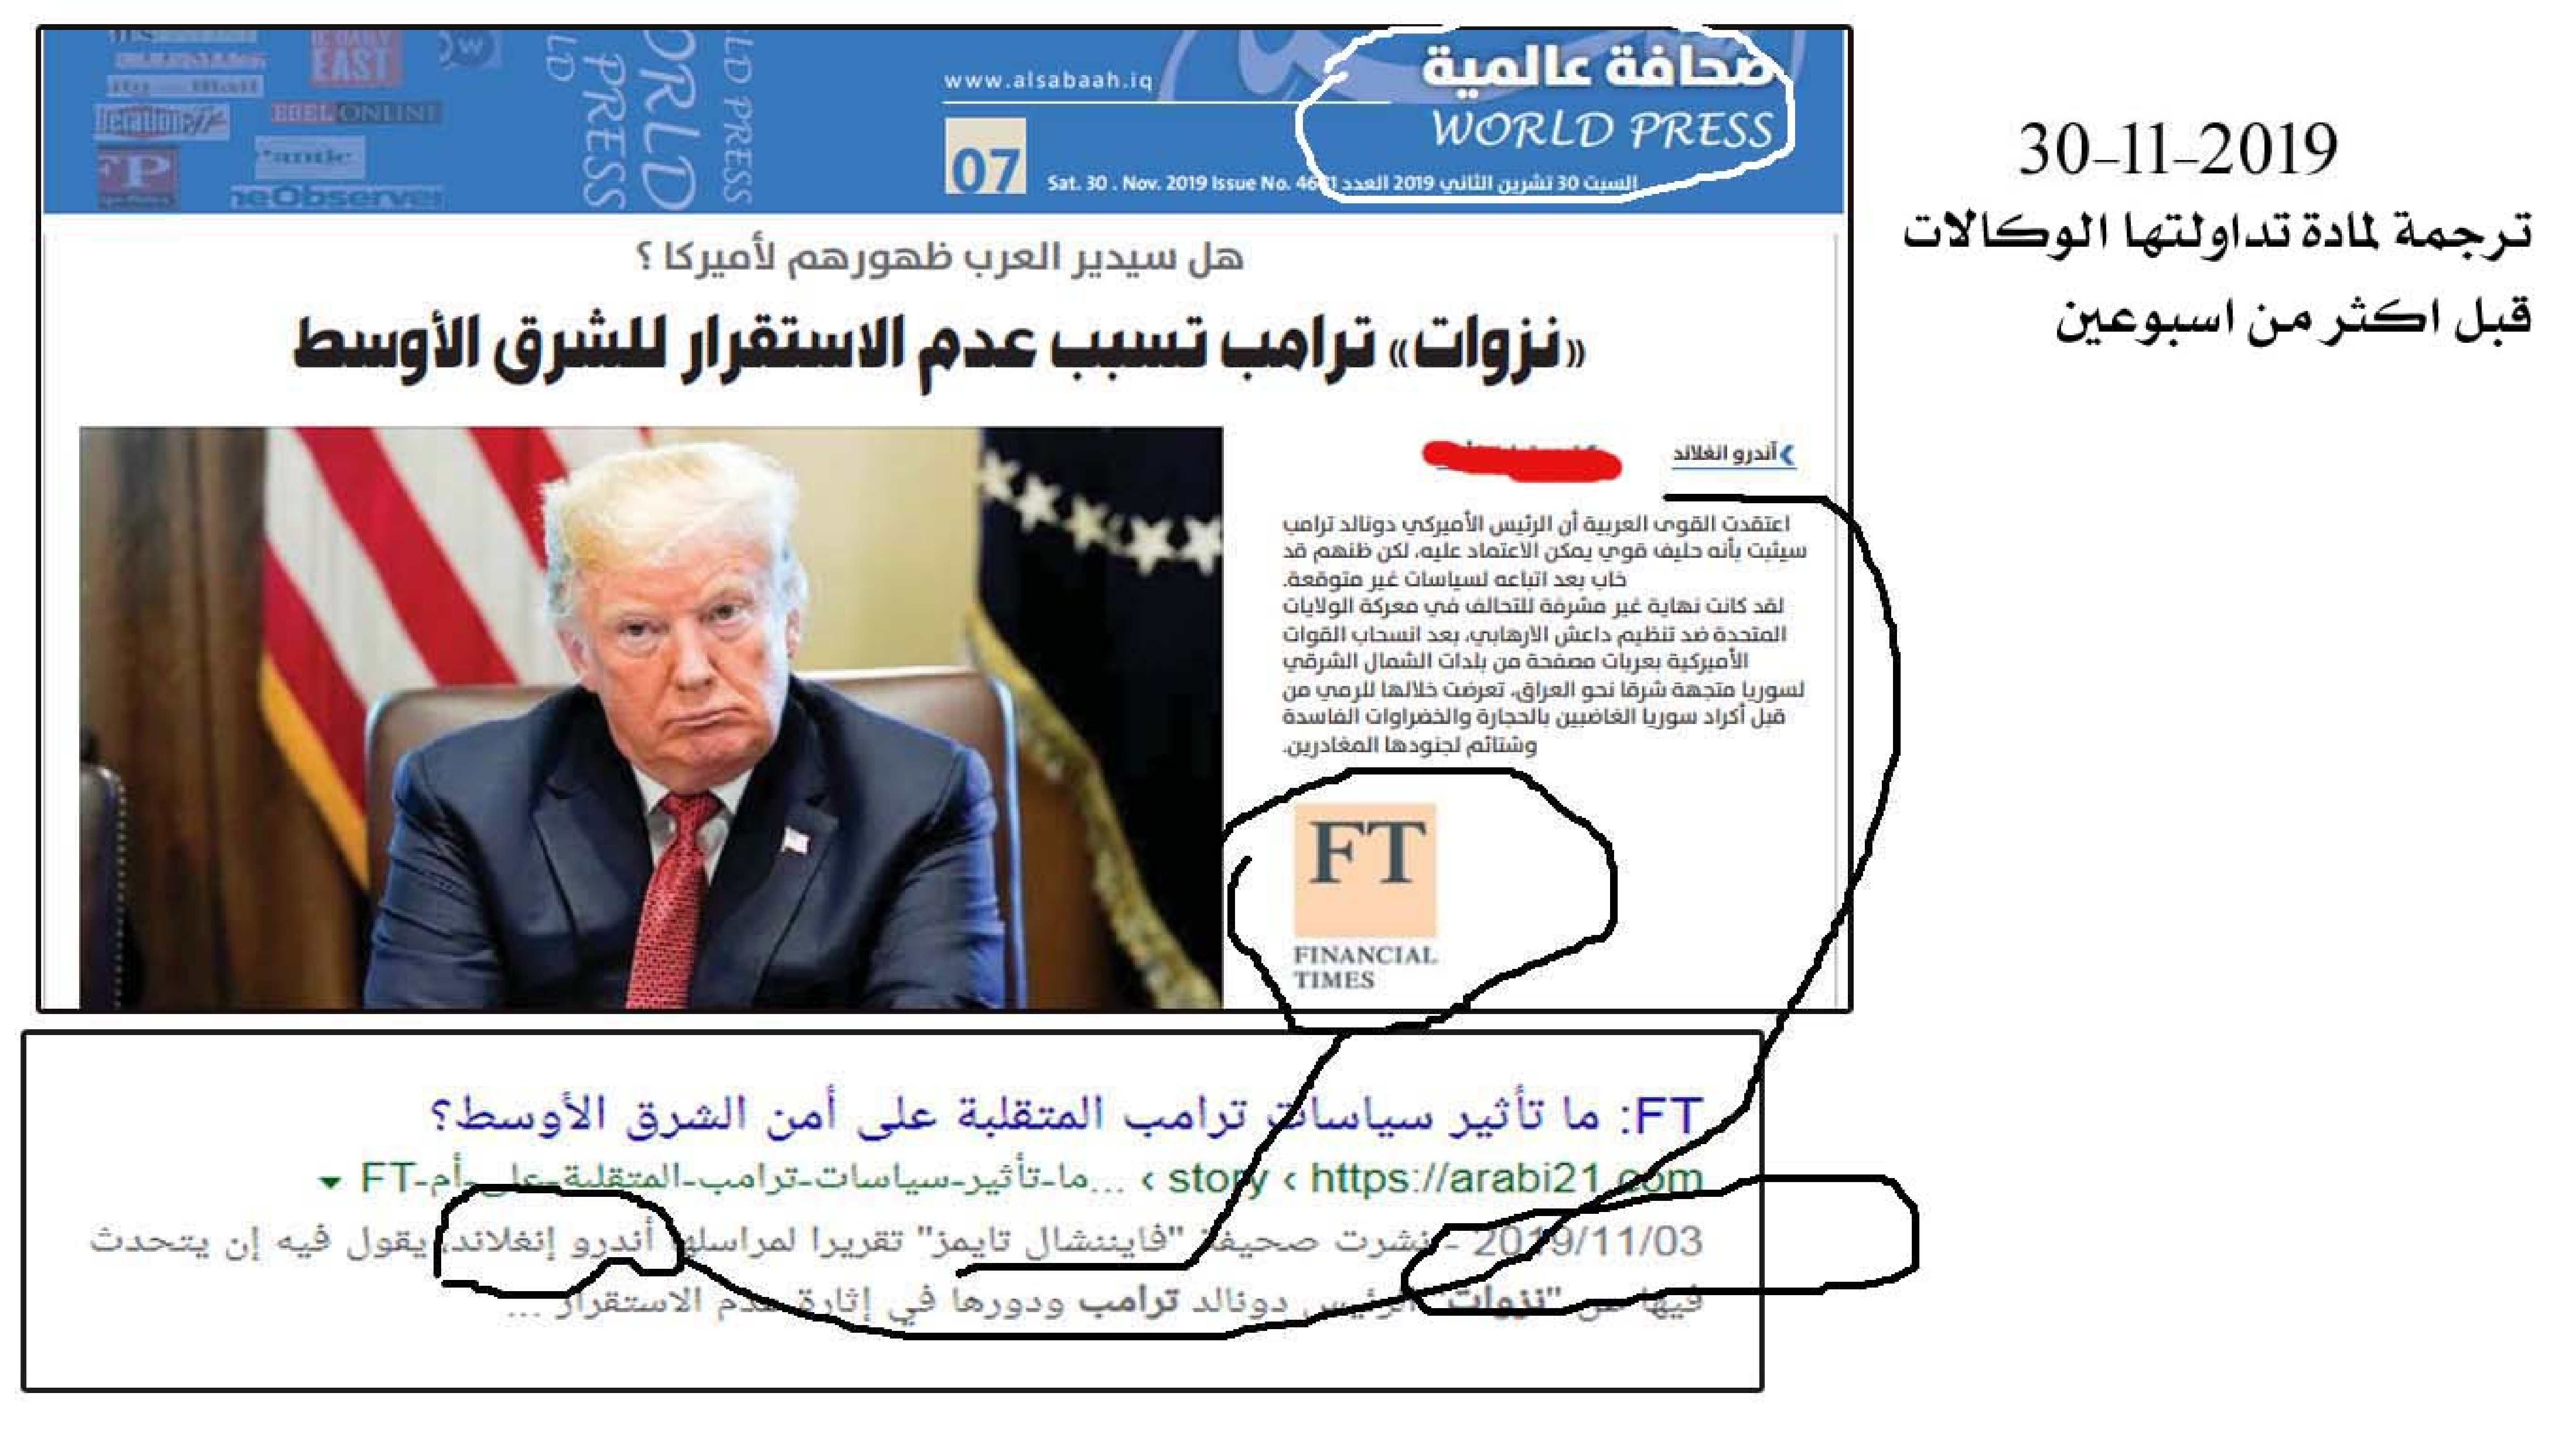 صحافة عالمية
WORLD PRESS
www.alsabaah.iq
07
Sat. 30 . Nov. 2019 Issue No. السبت 30 تشرين الثاني 2019 العدد
WORLD PRESS
EAST
ONLINE
FP
30-11-2019
ترجمة لمادة تداولتها الوكالات
قبل اكثر من اسبوعين
هل سيدير العرب ظهورهم لأميركا ؟
«نزوات» ترامب تسبب عدم الاستقرار للشرق الأوسط
آندرو انغلاند
اعتقدت القوى العربية أن الرئيس الأميركي دونالد ترامب
سيثبت بأنه حليف قوي يمكن الاعتماد عليه، لكن ظنهم قد
خاب بعد اتباعه لسياسات غير متوقعة.
لقد كانت نهاية غير مشرفة للتحالف في معركة الولايات
المتحدة ضد تنظيم داعش الارهابي، بعد انسحاب القوات
الأميركية بعربات مصفحة من بلدات الشمال الشرقي
لسوريا متجهة شرقا نحو العراق، تعرضت خلالها للرمي من
قبل أكراد سوريا الغاضبين بالحجارة والخضراوات الفاسدة
وشتائم لجنودها المغادرين.
FT
FINANCIAL
TIMES
FT: ما تأثير سياسات ترامب المتقلبة على أمن الشرق الأوسط؟
https://arabi21.com › story › ...ما-تأثير-سياسات-ترامب-المتقلبة-على-أم-FT
2019/11/03 - نشرت صحيفة "فايننشال تايمز" تقريرا لمراسلها أندرو إنغلاند، يقول فيه إن يتحدث
فيها عن "نزوات" الرئيس دونالد ترامب ودورها في إثارة عدم الاستقرار ...